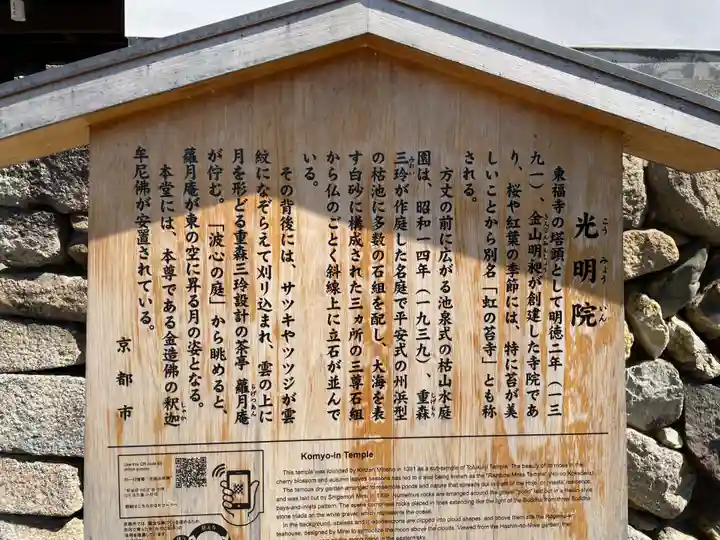 光明院
こうみょういん
東福寺の塔頭として明徳二年（一三
九一）、金山明昶が創建した寺院であ
り、桜や紅葉の季節には、特に苔が美
しいことから別名「虹の苔寺」とも称
される。
方丈の前に広がる池泉式の枯山水庭
園は、昭和一四年（一九三九）、重森
三玲が作庭した名庭で平安式の州浜型
の枯池に多数の石組を配し、大海を表
す白砂に構成された三ヵ所の三尊石組
から仏のごとく斜線上に立石が並んで
いる。
その背後には、サツキやツツジが雲
紋になぞらえて刈り込まれ、雲の上に
月を形どる重森三玲設計の茶亭 蘿月庵
が佇む。「波心の庭」から眺めると、
蘿月庵が東の空に昇る月の姿となる。
本堂には、本尊である金造佛の釈迦
牟尼佛が安置されている。
京都市
Komyo-in Temple
This temple was founded by Kinzan Myosho in 1391 as a sub-temple of Tofukuji Temple. The beauty of its moss in the
cherry blossom and autumn leaves seasons has led to it also being known as the
The famous dry garden arranged to resemble ponds and nature that spreads out in front of the Hojo, or priests' residence,
and was laid out by Shigemori Mirei in 1939. Numerous rocks are arranged around the grassy "pond" laid out in a Heian-style
stone triads on the white gravel which represents the ocean.
In the background, azaleas and rhododendrons are clipped into cloud shapes, and above them sits the
teahouse, designed by Mirei to symbolize the moon above the clouds. Viewed from the Hashin-no-Niwa garden, the